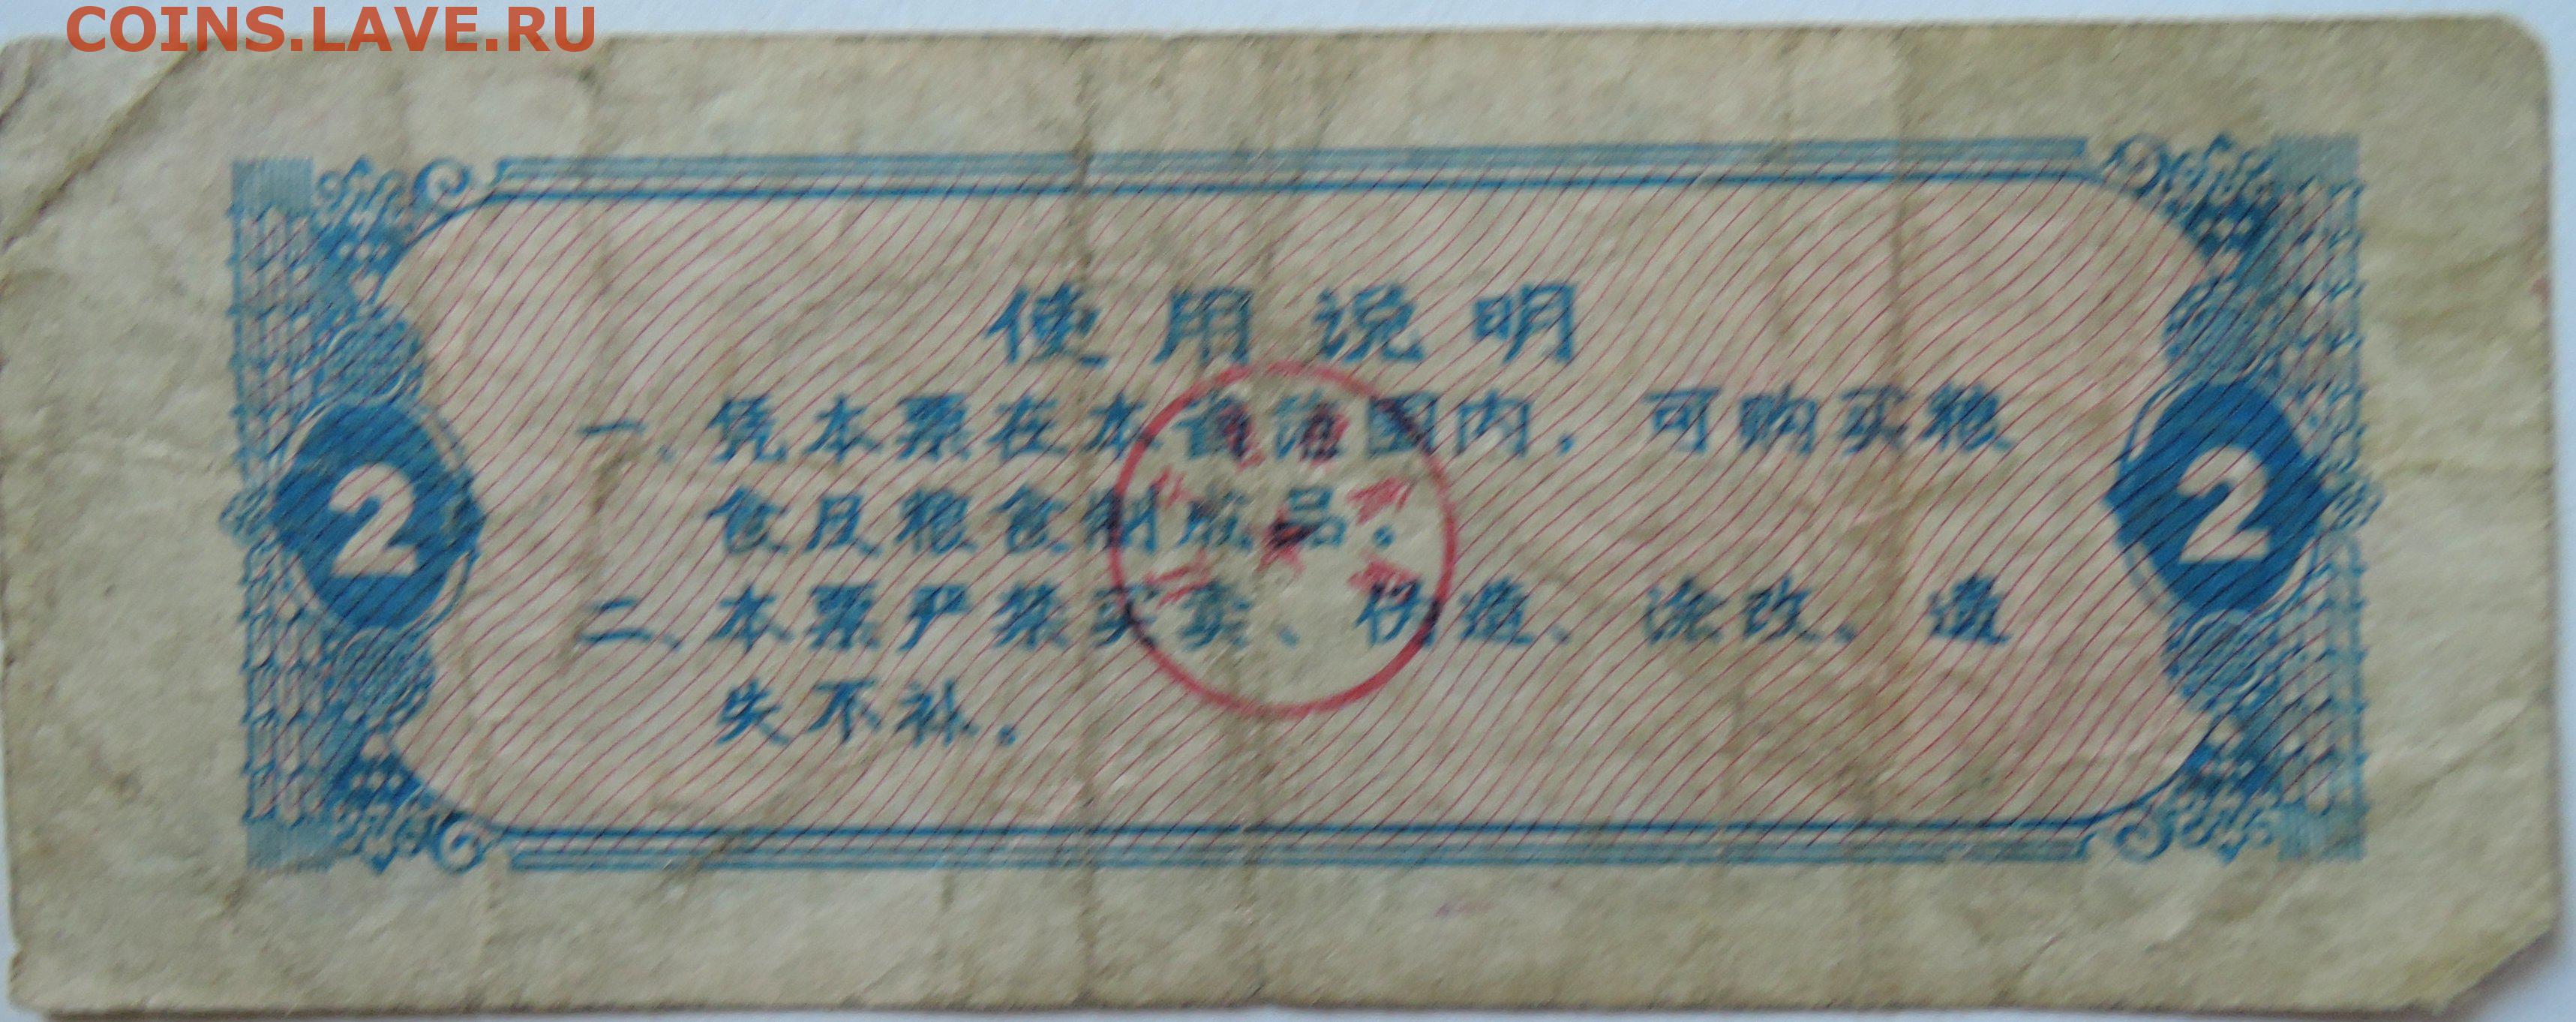 COINS.LAVE.RU
使用说明
一、凭本票在本省范围内，可购买粮
2
食及粮食制成品。
2
二、本票严禁买卖、仿造、涂改，遗
失不补。